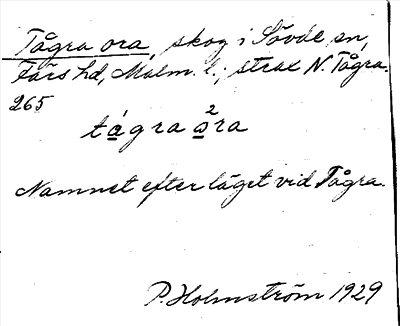 Tågra ora, skog i Sövde sn,
Färs hd, Malm. l.; strax N. Tågra.
265
tágra òra
2
Namnet efter läget vid Tågra.
P. Holmström 1929